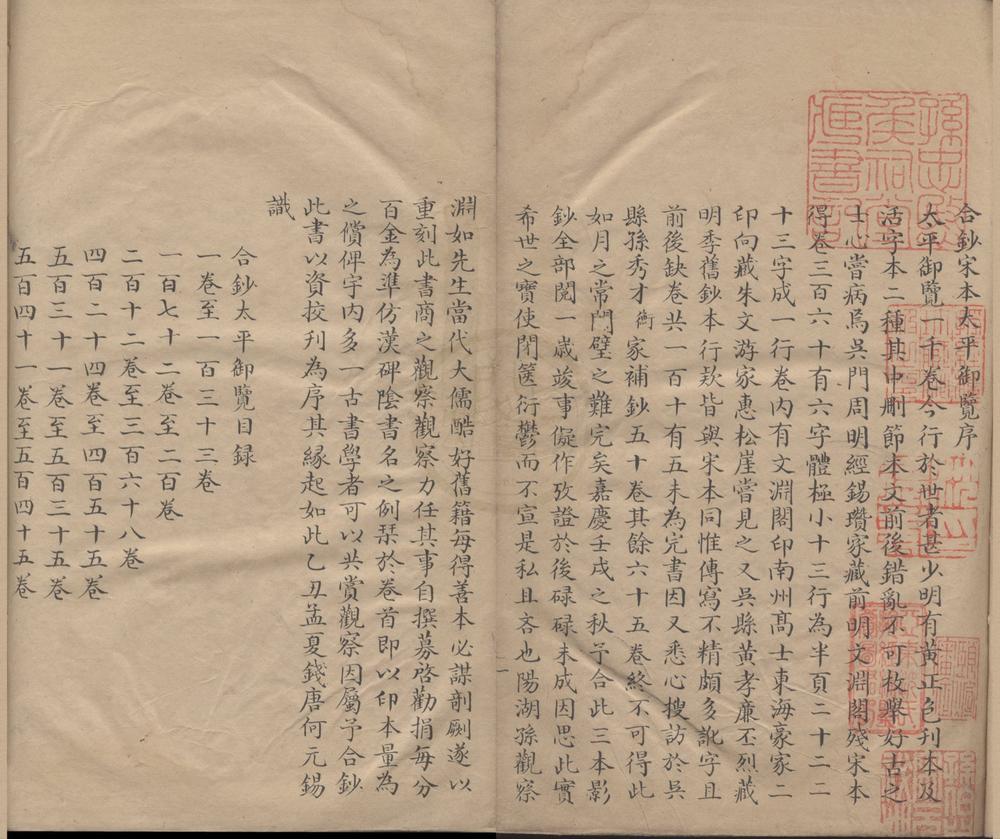 合鈔宋本太平御覽序
太平御覽一千卷今行於世者甚少明有黃正色刊本及
活字本二種其中刪節本文前後錯亂不可枚舉好古之
士心嘗病焉吳門周明經錫瓚家藏前明文淵閣殘宋本
得卷三百六十有六字體極小十三行為半頁二十二二
十三字成一行卷內有文淵閣印南州髙士東海豪家二
印向藏朱文游家惠松崖嘗見之又吳縣黃孝廉丕烈藏
明季舊鈔本行款皆與宋本同惟傳寫不精頗多訛字且
前後缺卷共一百十有五未為完書因又悉心搜訪於吳
縣孫秀才衡家補鈔五十卷其餘六十五卷終不可得此
如月之常門璧之難完矣嘉慶壬戌之秋予合此三本影
鈔全部閱一歲竣事儗作攷證於後碌碌未成因思此實
希世之寶使閉篋衍鬱而不宣是私且吝也陽湖孫觀察
淵如先生當代大儒酷好舊籍每得善本必謀剞劂遂以
重刻此書商之觀察觀察力任其事自撰募啓勸捐每分
百金為準仿漢碑陰書名之例琹於卷首即以印本量為
之償俾宇內多一古書學者可以共賞觀察因屬予合鈔
此書以資挍刊為序其緣起如此乙丑孟夏錢唐何元錫
識
合鈔太平御覽目録
一卷至一百三十三卷
一百七十二卷至二百卷
二百十二卷至三百六十八卷
四百二十四卷至四百五十五卷
五百三十一卷至五百三十五卷
五百四十一卷至五百四十五卷
孫忠愍
侯祠堂
藏書記